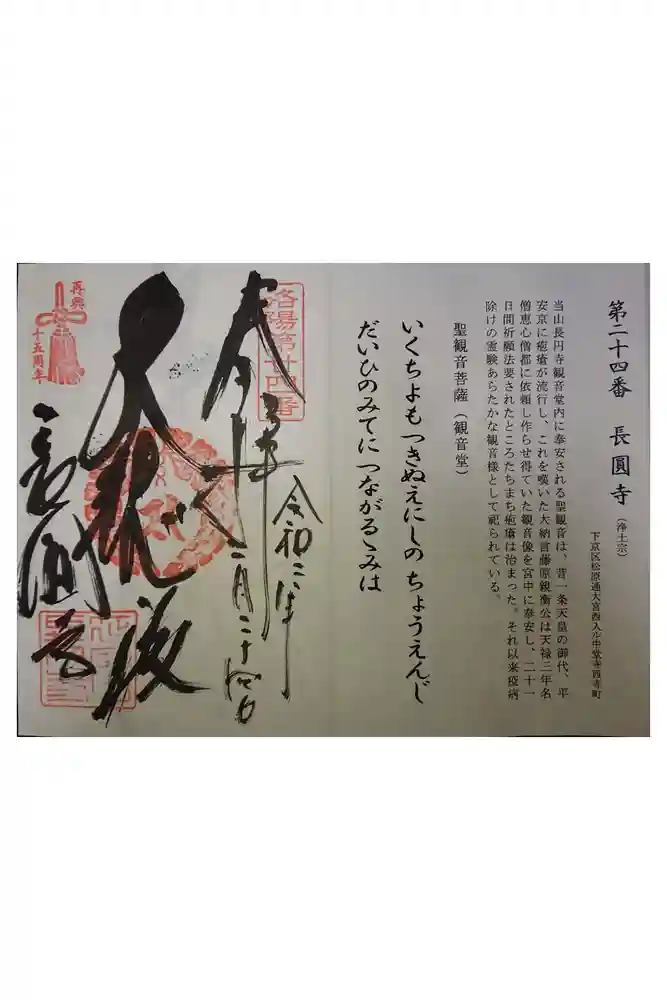 第二十四番　長圓寺（浄土宗）
下京区松原通大宮西入ル中堂寺西寺町
当山長円寺観音堂内に奉安される聖観音は、昔一条天皇の御代、平
安京に疱瘡が流行し、これを嘆いた大納言藤原親衡公は天禄三年名
僧恵心僧都に依頼し作らせ得ていた観音像を宮中に奉安し、二十一
日間祈願法要されたところたちまち疱瘡は治まった。それ以来疫病
除けの霊験あらたかな観音様として祀られている。
聖観音菩薩（観音堂）
いくちよもつきぬえにしのちょうえんじ
だいひのみてにつながるゝみは
洛陽第廿四番
奉拝
令和二年
二月二十四日
大観
長圓寺
再興
十五周年